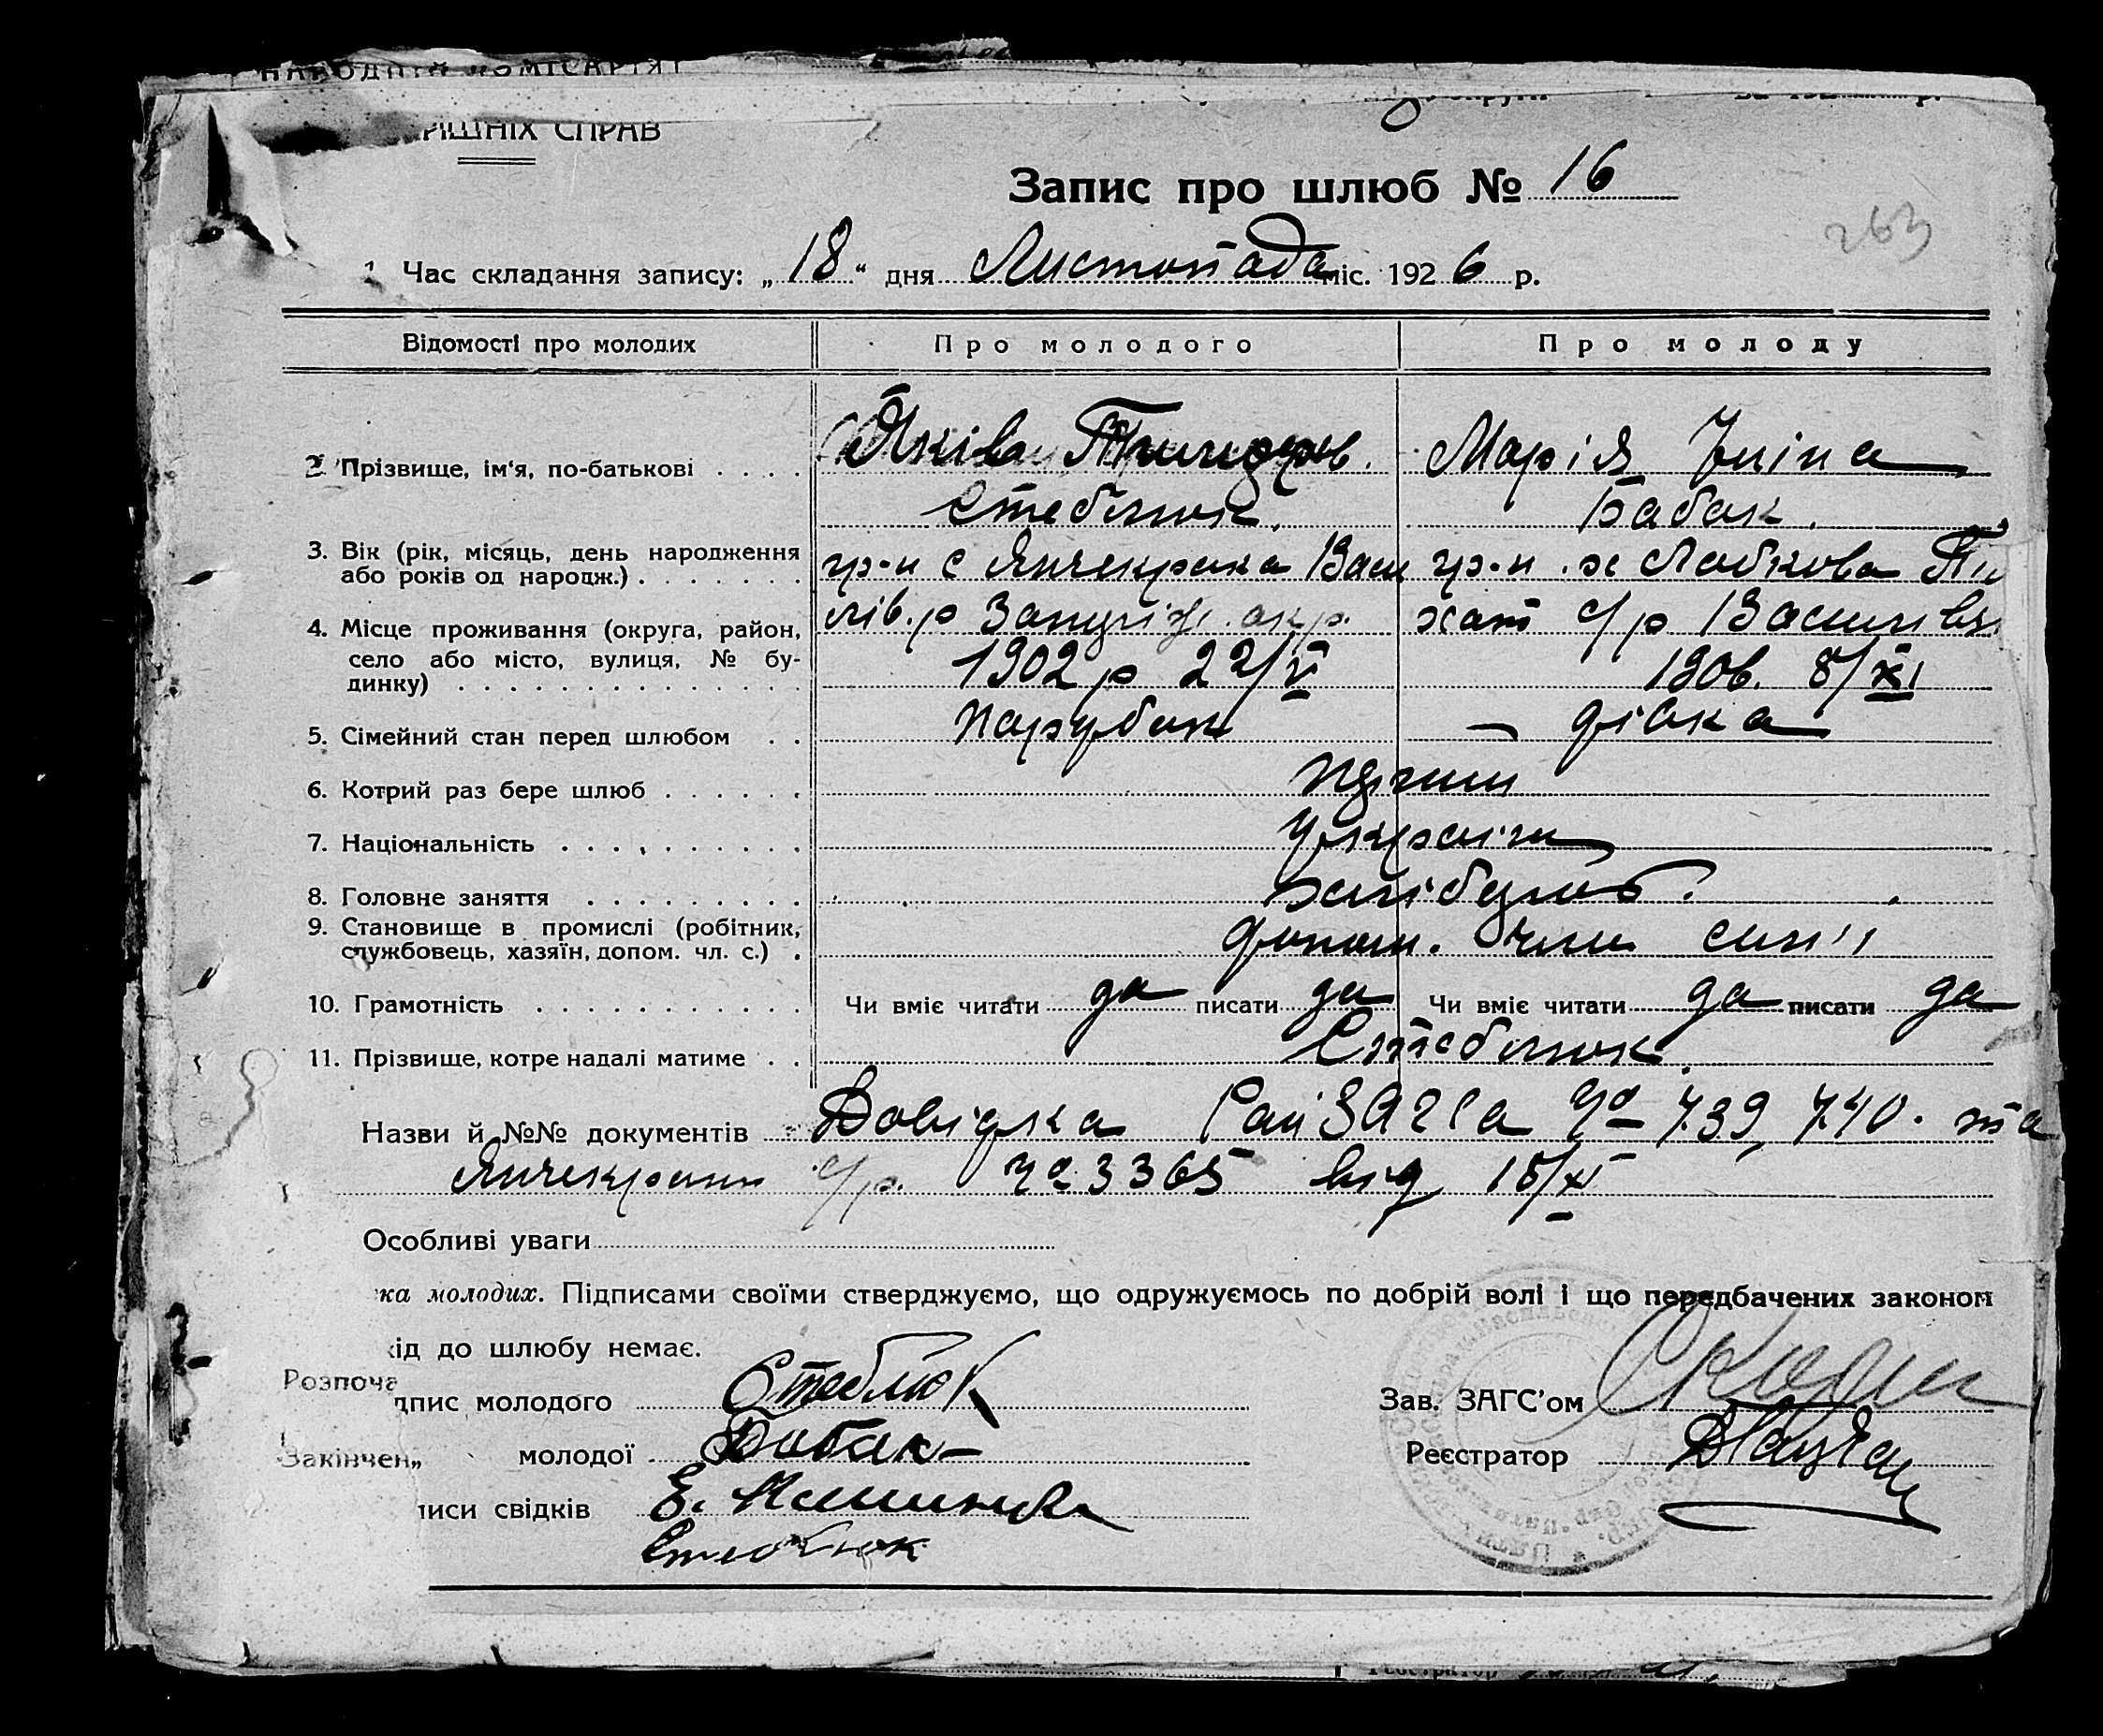 НАРОДНІЙ КОМІСАРІЯТ
РІШНІХ СПРАВ
Запис про шлюб № 16
263
1. Час складання запису: „18“ дня Листопада міс. 1926 р.
Відомості про молодих Про молодого Про молоду
2. Прізвище, ім'я, по-батькові Яків Стеблюк. Марія Бабак.
3. Вік (рік, місяць, день народження або років од народж.) гр-н с Янчекрака Васи гр-н х Лобкова
4. Місце проживання (округа, район, село або місто, вулиця, № будинку) лів.р Запоріж. окр. 1902 р 22/V хат с/р Василівц 1906. 8/XI
5. Сімейний стан перед шлюбом парубок – дівка
6. Котрий раз бере шлюб перший
7. Національність україн
8. Головне заняття хлібороб.
9. Становище в промислі (робітник, службовець, хазяїн, допом. чл. с.) допом. член сим'ї
10. Грамотність Чи вміє читати да писати да Чи вміє читати да писати да
11. Прізвище, котре надалі матиме Стеблюк
Назви й №№ документів Довідка Рай ЗАГСа № 739, 740. та
Янчекрак с/р. № 3365 від 15/XI
Особливі уваги
ка молодих. Підписами своїми стверджуємо, що одружуємось по добрій волі і що передбачених законом
ід до шлюбу немає.
Розпоча
дпис молодого Стеблюк Зав. ЗАГС'ом
Закінчен„ молодої Бабак Реєстратор
писи свідків Е.
Стеблюк
Реєстратор